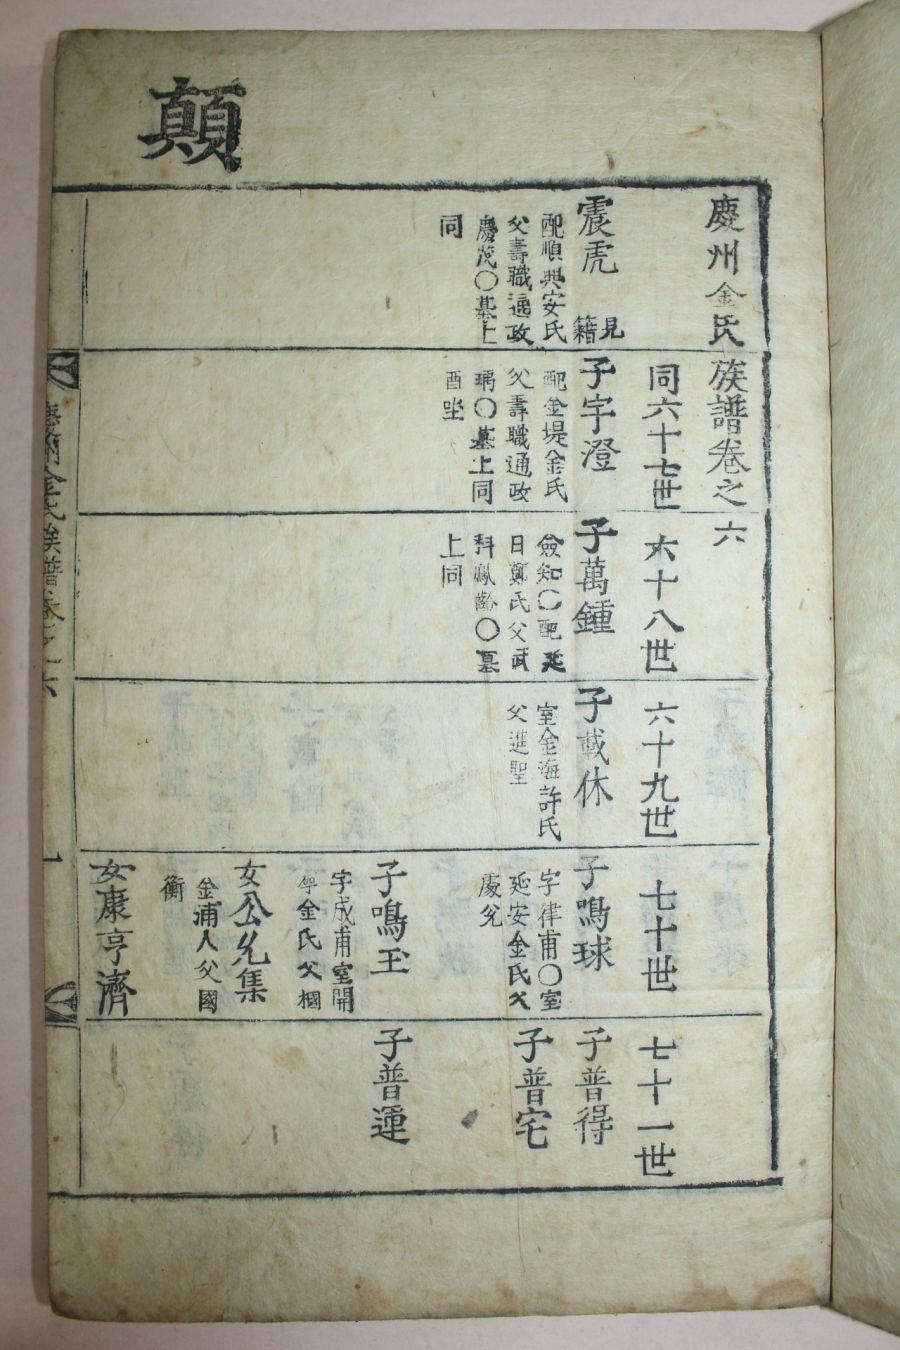 顛
慶州金氏族譜卷之六
震虎
見
籍
配順興安氏
父壽職通政
慶茂〇墓上
同
同六十七世
子宇澄
配金堤金氏
父壽職通政
瑀〇墓上同
酉坐
六十八世
子萬鍾
僉知〇配延
日鄭氏父武
科鳳齡〇墓
上同
六十九世
子載休
室金海許氏
父進聖
七十世
子鳴球
字律甫〇室
延安金氏父
慶兊
子鳴玉
字成甫室開
寧金氏父榥
女公允集
金浦人父國
衡
女康亨濟
七十一世
子普得
子普宅
子普運
慶州金氏族譜卷之六
一